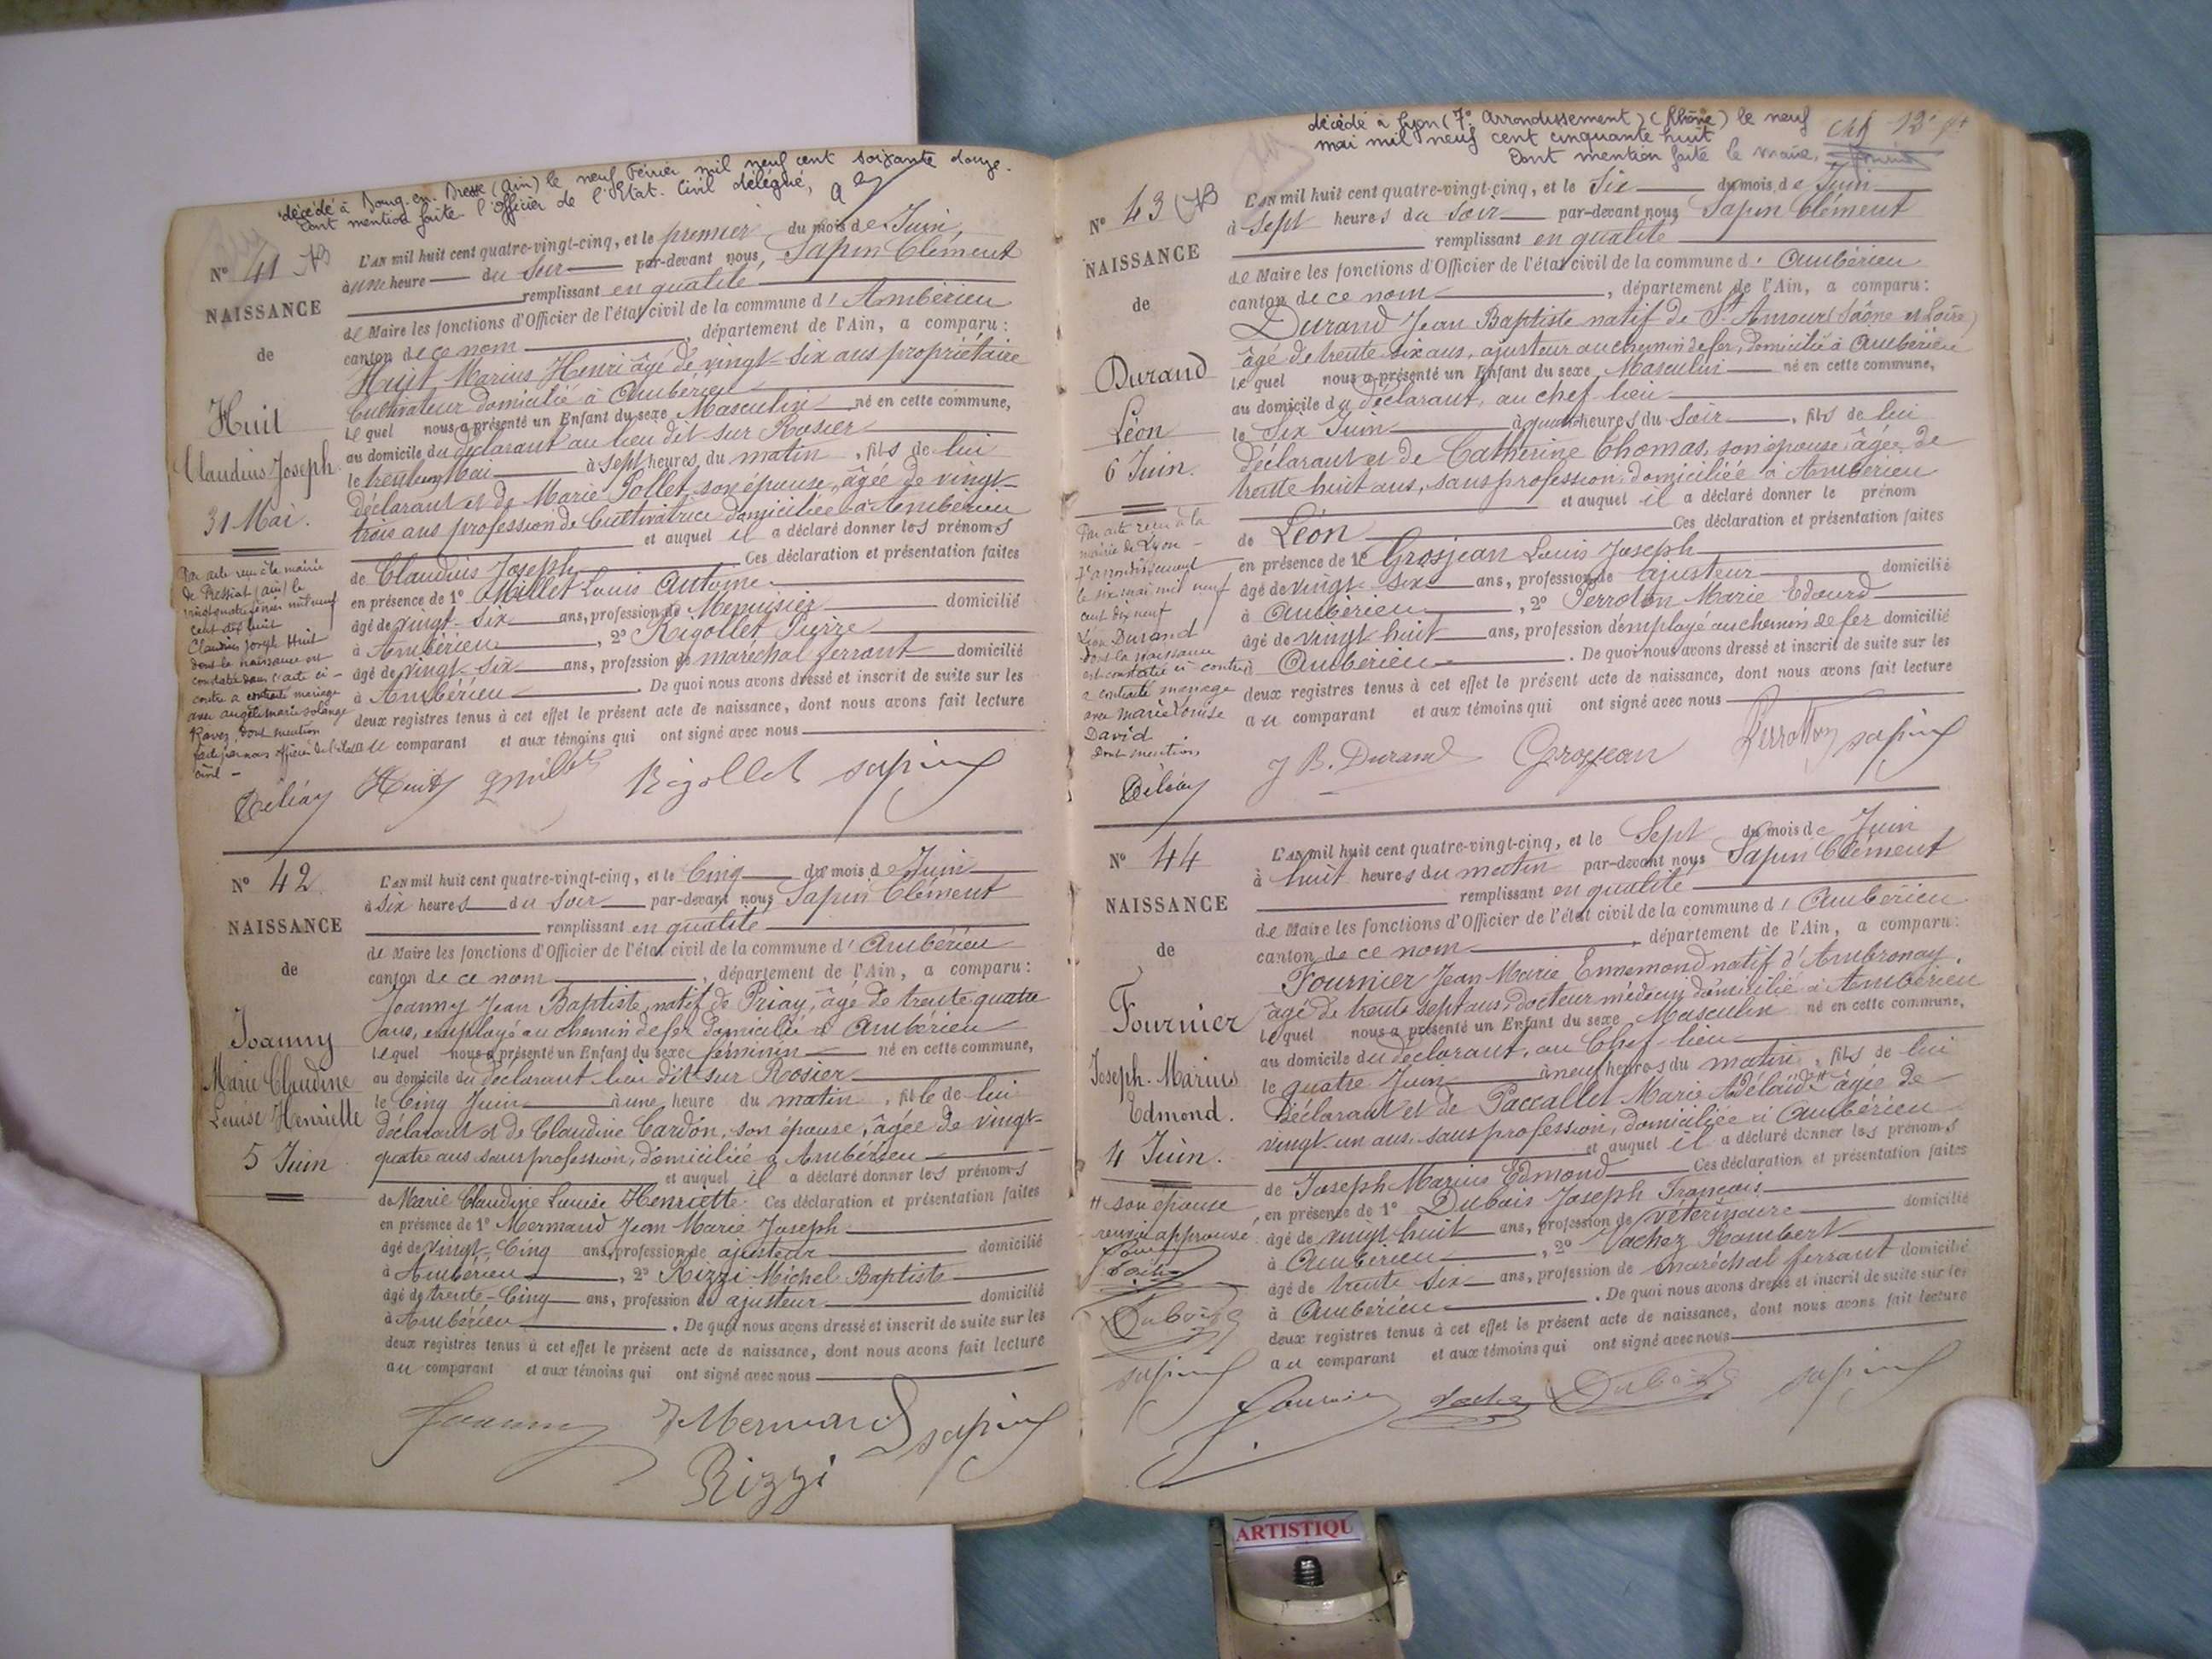 décédé à Bourg-en-Bresse (Ain) le neuf Février mil neuf cent soixante douze.
Dont mention faite. l'Officier de l'Etat. Civil délégué,
N° 41
NAISSANCE
de
Huit
Claudius Joseph
31 Mai.
Par acte reçu à la mairie
de Pressiat (ain) le
vingt quatre février mil neuf
cent dix huit
Claudius Joseph Huit
dont la naissance est
constatée dans l'acte ci-
contre a contracté mariage
avec angèle marie solange
Ravez, dont mention
faite par nous officier de l'état
civil -
L'AN mil huit cent quatre-vingt-cinq, et le premier du mois de Juin,
à une heure du Soir par-devant nous, Sapin Clément
remplissant en qualité
de Maire les fonctions d'Officier de l'état civil de la commune d' Ambérieu
canton de ce nom, département de l'Ain, a comparu :
Huit Marius Henri âgé de vingt-six ans propriétaire
Cultivateur domicilié à Ambérieu
Lequel nous a présenté un Enfant du sexe Masculin né en cette commune,
au domicile du déclarant au lieu dit sur Rosier
le trente un Mai à sept heures du matin, fils de lui
déclarant et de Marie Pollet, son épouse, âgée de vingt-
trois ans profession de Cultivatrice domiciliée à Ambérieu
et auquel il a déclaré donner les prénoms
de Claudius Joseph Ces déclaration et présentation faites
en présence de 1° Millet Louis Antoine
âgé de vingt-six ans, profession de Menuisier domicilié
à Ambérieu, 2° Rigollet Pierre
âgé de vingt-six ans, profession de maréchal ferrant domicilié
à Ambérieu. De quoi nous avons dressé et inscrit de suite sur les
deux registres tenus à cet effet le présent acte de naissance, dont nous avons fait lecture
au comparant et aux témoins qui ont signé avec nous
Huit Millet Rigollet Sapin
N° 42
NAISSANCE
de
Joanny
Marie Claudine
Louise Henriette
5 Juin
L'AN mil huit cent quatre-vingt-cinq, et le Cinq du mois de Juin
à Six heures du Soir par-devant nous, Sapin Clément
remplissant en qualité
de Maire les fonctions d'Officier de l'état civil de la commune d' Ambérieu
canton de ce nom, département de l'Ain, a comparu :
Joanny Jean Baptiste, natif de Priay, âgé de trente quatre
ans, employé au chemin de fer domicilié à Ambérieu
Lequel nous a présenté un Enfant du sexe féminin né en cette commune,
au domicile du déclarant lieu dit sur Rosier
le Cinq Juin à une heure du matin, fille de lui
déclarant et de Claudine Cardon, son épouse, âgée de vingt-
quatre ans sans profession, domiciliée à Ambérieu
et auquel il a déclaré donner les prénoms
de Marie Claudine Louise Henriette. Ces déclaration et présentation faites
en présence de 1° Mermand Jean Marie Joseph
âgé de vingt-Cinq ans, profession de ajusteur domicilié
à Ambérieu, 2° Rizzi Michel Baptiste
âgé de trente-Cinq ans, profession de ajusteur domicilié
à Ambérieu. De quoi nous avons dressé et inscrit de suite sur les
deux registres tenus à cet effet le présent acte de naissance, dont nous avons fait lecture
au comparant et aux témoins qui ont signé avec nous
Joanny JMermand Sapin
Rizzi
décédé à Lyon (7e Arrondissement) (Rhône) le neuf
mai mil neuf cent cinquante huit
Dont mention faite le maire,
N° 43
NAISSANCE
de
Durand
Léon
6 Juin.
Par acte reçu à la
mairie de Lyon -
7e arrondissement
le six mai mil neuf
cent dix neuf
Léon Durand
dont la naissance
est constatée ci contre
a contracté mariage
avec Marie Louise
David
dont mention
L'AN mil huit cent quatre-vingt-cinq, et le Six du mois de Juin
à Sept heures du Soir par-devant nous Sapin Clément
remplissant en qualité
de Maire les fonctions d'Officier de l'état civil de la commune d' Ambérieu
canton de ce nom, département de l'Ain, a comparu :
Durand Jean Baptiste natif de St Amour (Saône et Loire)
âgé de trente six ans, ajusteur au chemin de fer, domicilié à Ambérieu
Lequel nous a présenté un Enfant du sexe Masculin né en cette commune,
au domicile du déclarant, au chef lieu
le Six Juin à quatre heures du Soir, fils de lui
déclarant et de Catherine Thomas, son épouse, âgée de
trente huit ans, sans profession, domiciliée à Ambérieu
et auquel il a déclaré donner le prénom
de Léon Ces déclaration et présentation faites
en présence de 1° Grosjean Louis Joseph
âgé de vingt-six ans, profession de Ajusteur domicilié
à Ambérieu, 2° Perroton Marie Edouard
âgé de vingt huit ans, profession d'employé au chemin de fer domicilié
à Ambérieu. De quoi nous avons dressé et inscrit de suite sur les
deux registres tenus à cet effet le présent acte de naissance, dont nous avons fait lecture
au comparant et aux témoins qui ont signé avec nous
J B. Durand Grosjean Perroton Sapin
N° 44
NAISSANCE
de
Fournier
Joseph-Marius
Edmond.
4 Juin.
# son épouse
renvoi approuvé
Dubois
Sapin
L'AN mil huit cent quatre-vingt-cinq, et le Sept du mois de Juin
à huit heures du matin par-devant nous Sapin Clément
remplissant en qualité
de Maire les fonctions d'Officier de l'état civil de la commune d' Ambérieu
canton de ce nom, département de l'Ain, a comparu :
Fournier Jean Marie Ennemond natif d'Ambronay,
âgé de trente sept ans, docteur médecin domicilié à Ambérieu
Lequel nous a présenté un Enfant du sexe Masculin né en cette commune,
au domicile du déclarant, au Chef-lieu
le quatre Juin à neuf heures du matin, fils de lui
déclarant et de Paccallet Marie Adélaïde # âgée de
vingt un ans, sans profession, domiciliée à Ambérieu
et auquel il a déclaré donner les prénoms
de Joseph Marius Edmond Ces déclaration et présentation faites
en présence de 1° Dubois Joseph François
âgé de vingt huit ans, profession de vétérinaire domicilié
à Ambérieu, 2° Vachez Rambert
âgé de trente six ans, profession de maréchal ferrant domicilié
à Ambérieu. De quoi nous avons dressé et inscrit de suite sur les
deux registres tenus à cet effet le présent acte de naissance, dont nous avons fait lecture
au comparant et aux témoins qui ont signé avec nous
Fournier Vachez Dubois Sapin
ARTISTIQU